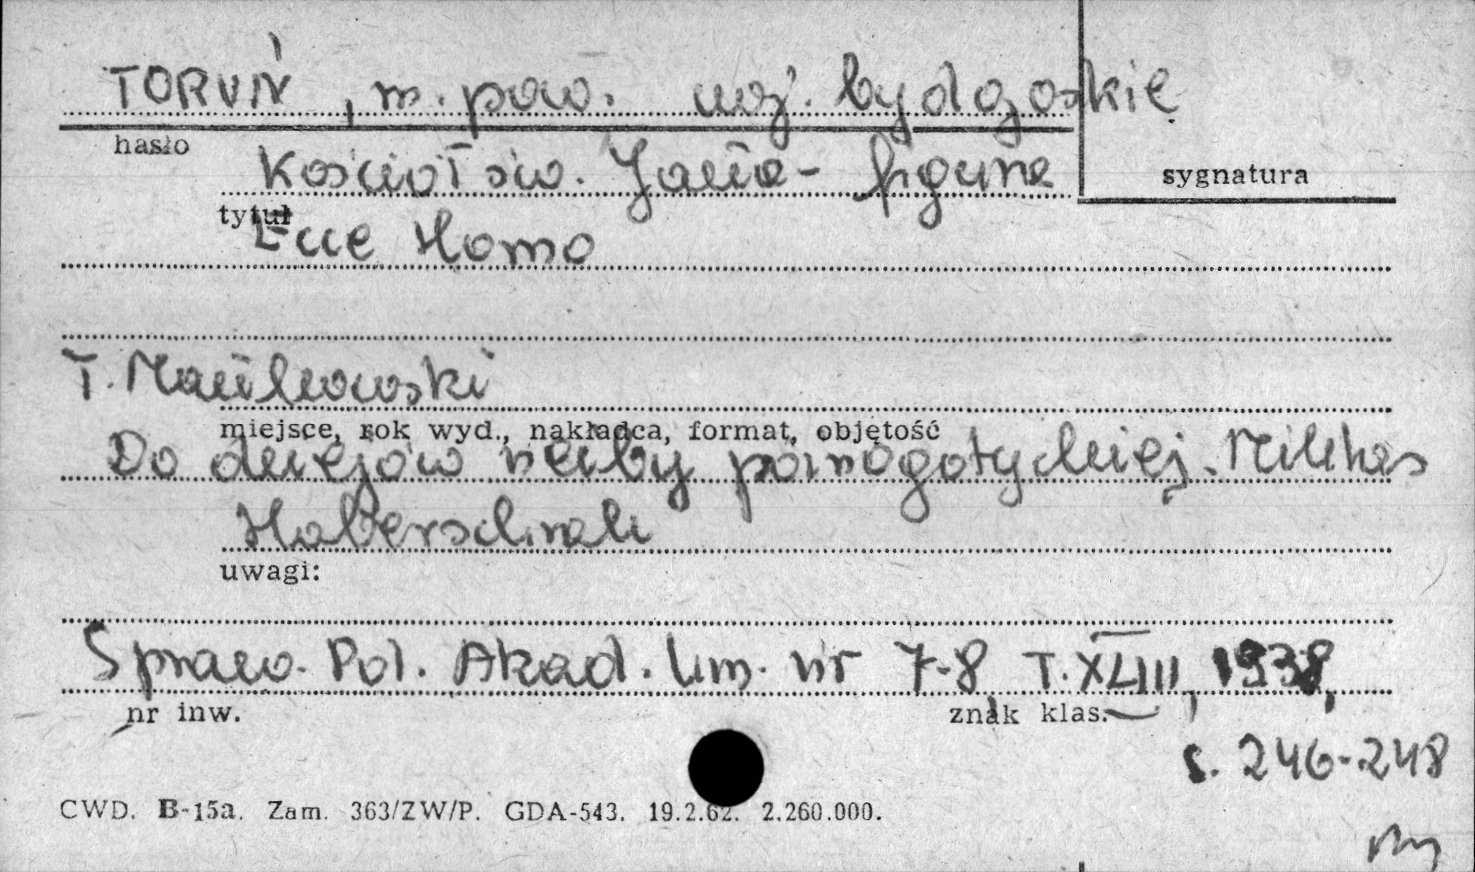 TORUŃ, m. pow. woj. bydgoskie
hasło
Kościół św. Jana - figura
sygnatura
tytuł
Ecce Homo
T. Mańkowski
miejsce, rok wyd., nakładca, format, objętość
Do dziejów rzeźby późnogotyckiej. Milthes
Haberschrak
uwagi:
Spraw. Pol. Akad. Um. nr 7-8 T. XLIII, 1938,
nr inw.
znak klas.
s. 246-248
CWD. B-15a. Zam. 363/ZW/P. GDA-543. 19.2.62. 2.260.000.